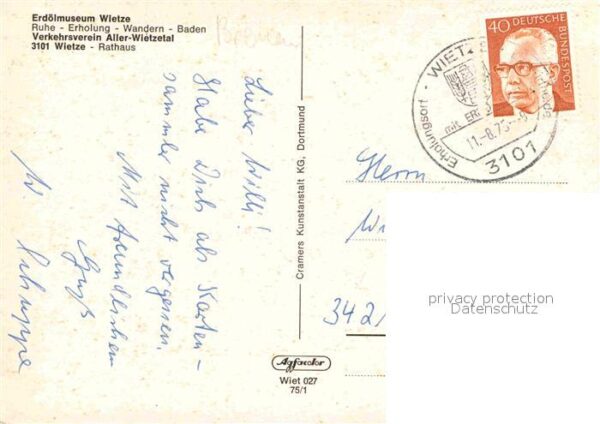 Erdölmuseum Wietze
Ruhe - Erholung - Wandern - Baden
Verkehrsverein Aller-Wietzetal
3101 Wietze - Rathaus
Bremen
Lieber Willi!
Habe Dich als Karten-
sammler nicht vergessen.
Mit freundlichem
Gruß
W. Schuppe
Cramers Kunstanstalt KG, Dortmund
Agfacolor
Wiet 027
75/1
40 DEUTSCHE
BUNDESPOST
Erholungsort - WIETZ
mit
11.-8.75-8
3101
Herrn
342
privacy protection
Datenschutz